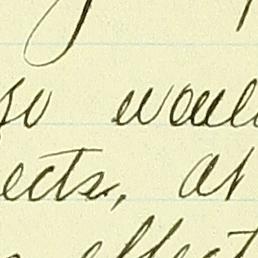 so would
ects, at
effect